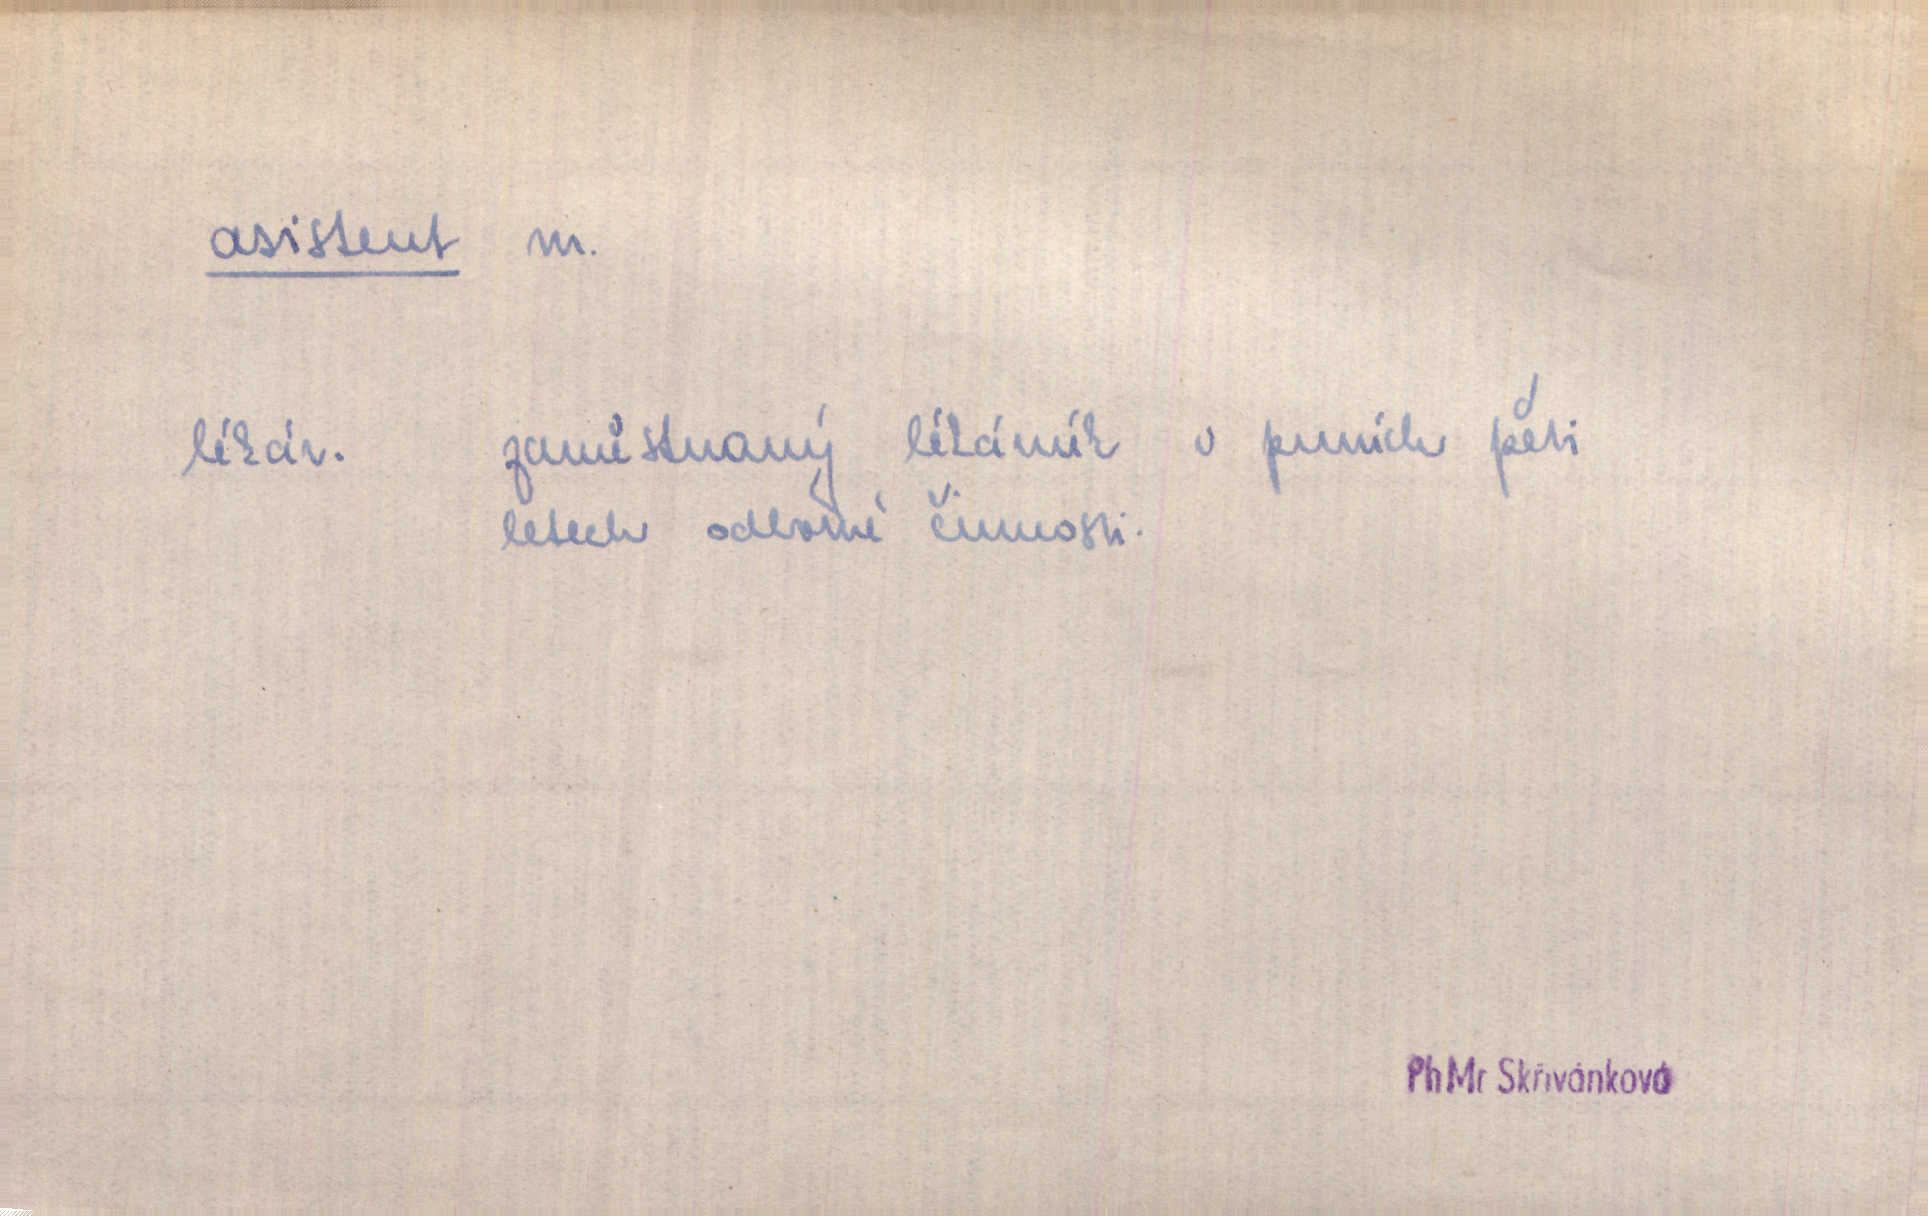 asistent m.
lékár. zaměstnaný lékárník v prvních pěti
letech odborné činnosti.
PhMr Skřivánková